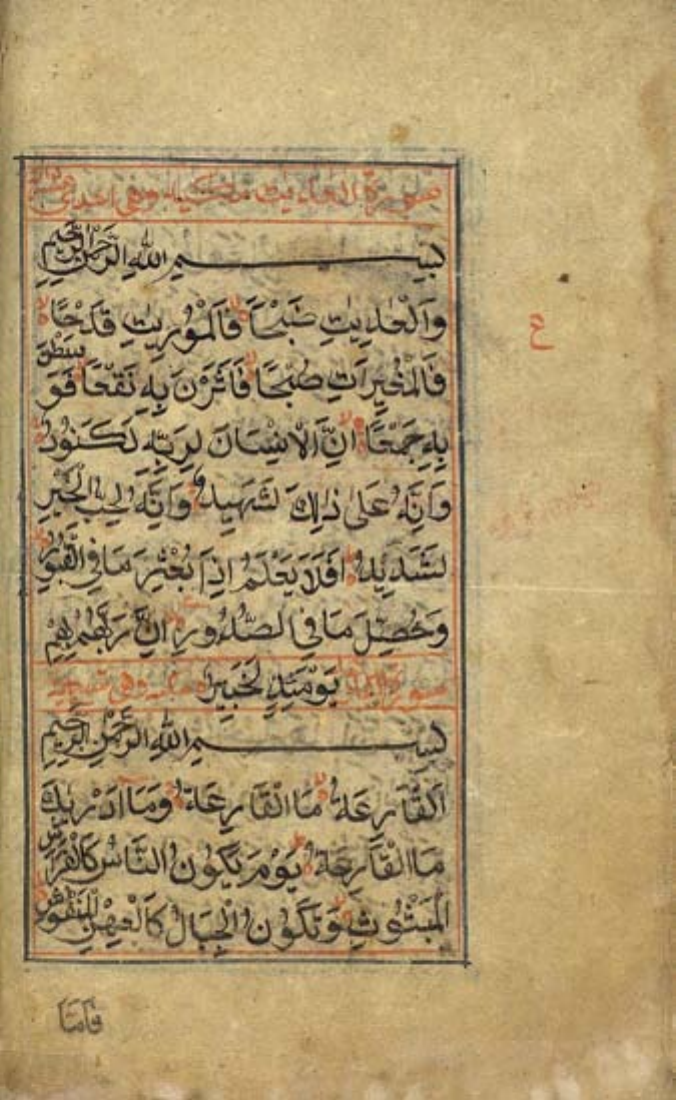 سورة العاديات مكية وهي احدى عشر
بسم الله الرحمن الرحيم
وَالْعٰدِيٰتِ ضَبْحًا فَالْمُوْرِيٰتِ قَدْحًا
فَالْمُغِيرَاتِ صُبْحًا فَاَثَرْنَ بِهِ نَقْعًا فَوَسَطْنَ
بِهِ جَمْعًا اِنَّ الْاِنْسَانَ لِرَبِّهِ لَكَنُوْدٌ
وَاِنَّهُ عَلٰى ذٰلِكَ لَشَهِيدٌ وَاِنَّهُ لِحُبِّ الْخَيْرِ
لَشَدِيْدٌ اَفَلَا يَعْلَمُ اِذَا بُعْثِرَ مَا فِي الْقُبُوْرِ
وَحُصِّلَ مَا فِي الصُّدُوْرِ اِنَّ رَبَّهُمْ بِهِمْ
يَوْمَئِذٍ لَخَبِيْرٌ
بسم الله الرحمن الرحيم
اَلْقَارِعَةُ مَا الْقَارِعَةُ وَمَا اَدْرٰىكَ
مَا الْقَارِعَةُ يَوْمَ يَكُوْنُ النَّاسُ كَالْفَرَاشِ
الْمَبْثُوْثِ وَتَكُوْنُ الْجِبَالُ كَالْعِهْنِ الْمَنْفُوْشِ
فامّا
ع